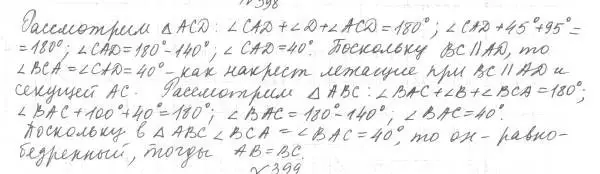 №398
Рассмотрим △ACD: ∠CAD+∠D+∠ACD=180°; ∠CAD+45°+95°=
=180°; ∠CAD=180°-140°; ∠CAD=40°. Поскольку BC∥AD, то
∠BCA=∠CAD=40° - как накрест лежащие при BC∥AD и
секущей AC. Рассмотрим △ABC: ∠BAC+∠B+∠BCA=180°;
∠BAC+100°+40°=180°; ∠BAC=180°-140°; ∠BAC=40°.
Поскольку в △ABC ∠BCA=∠BAC=40°, то он - равно-
бедренный, тогда AB=BC.
№399